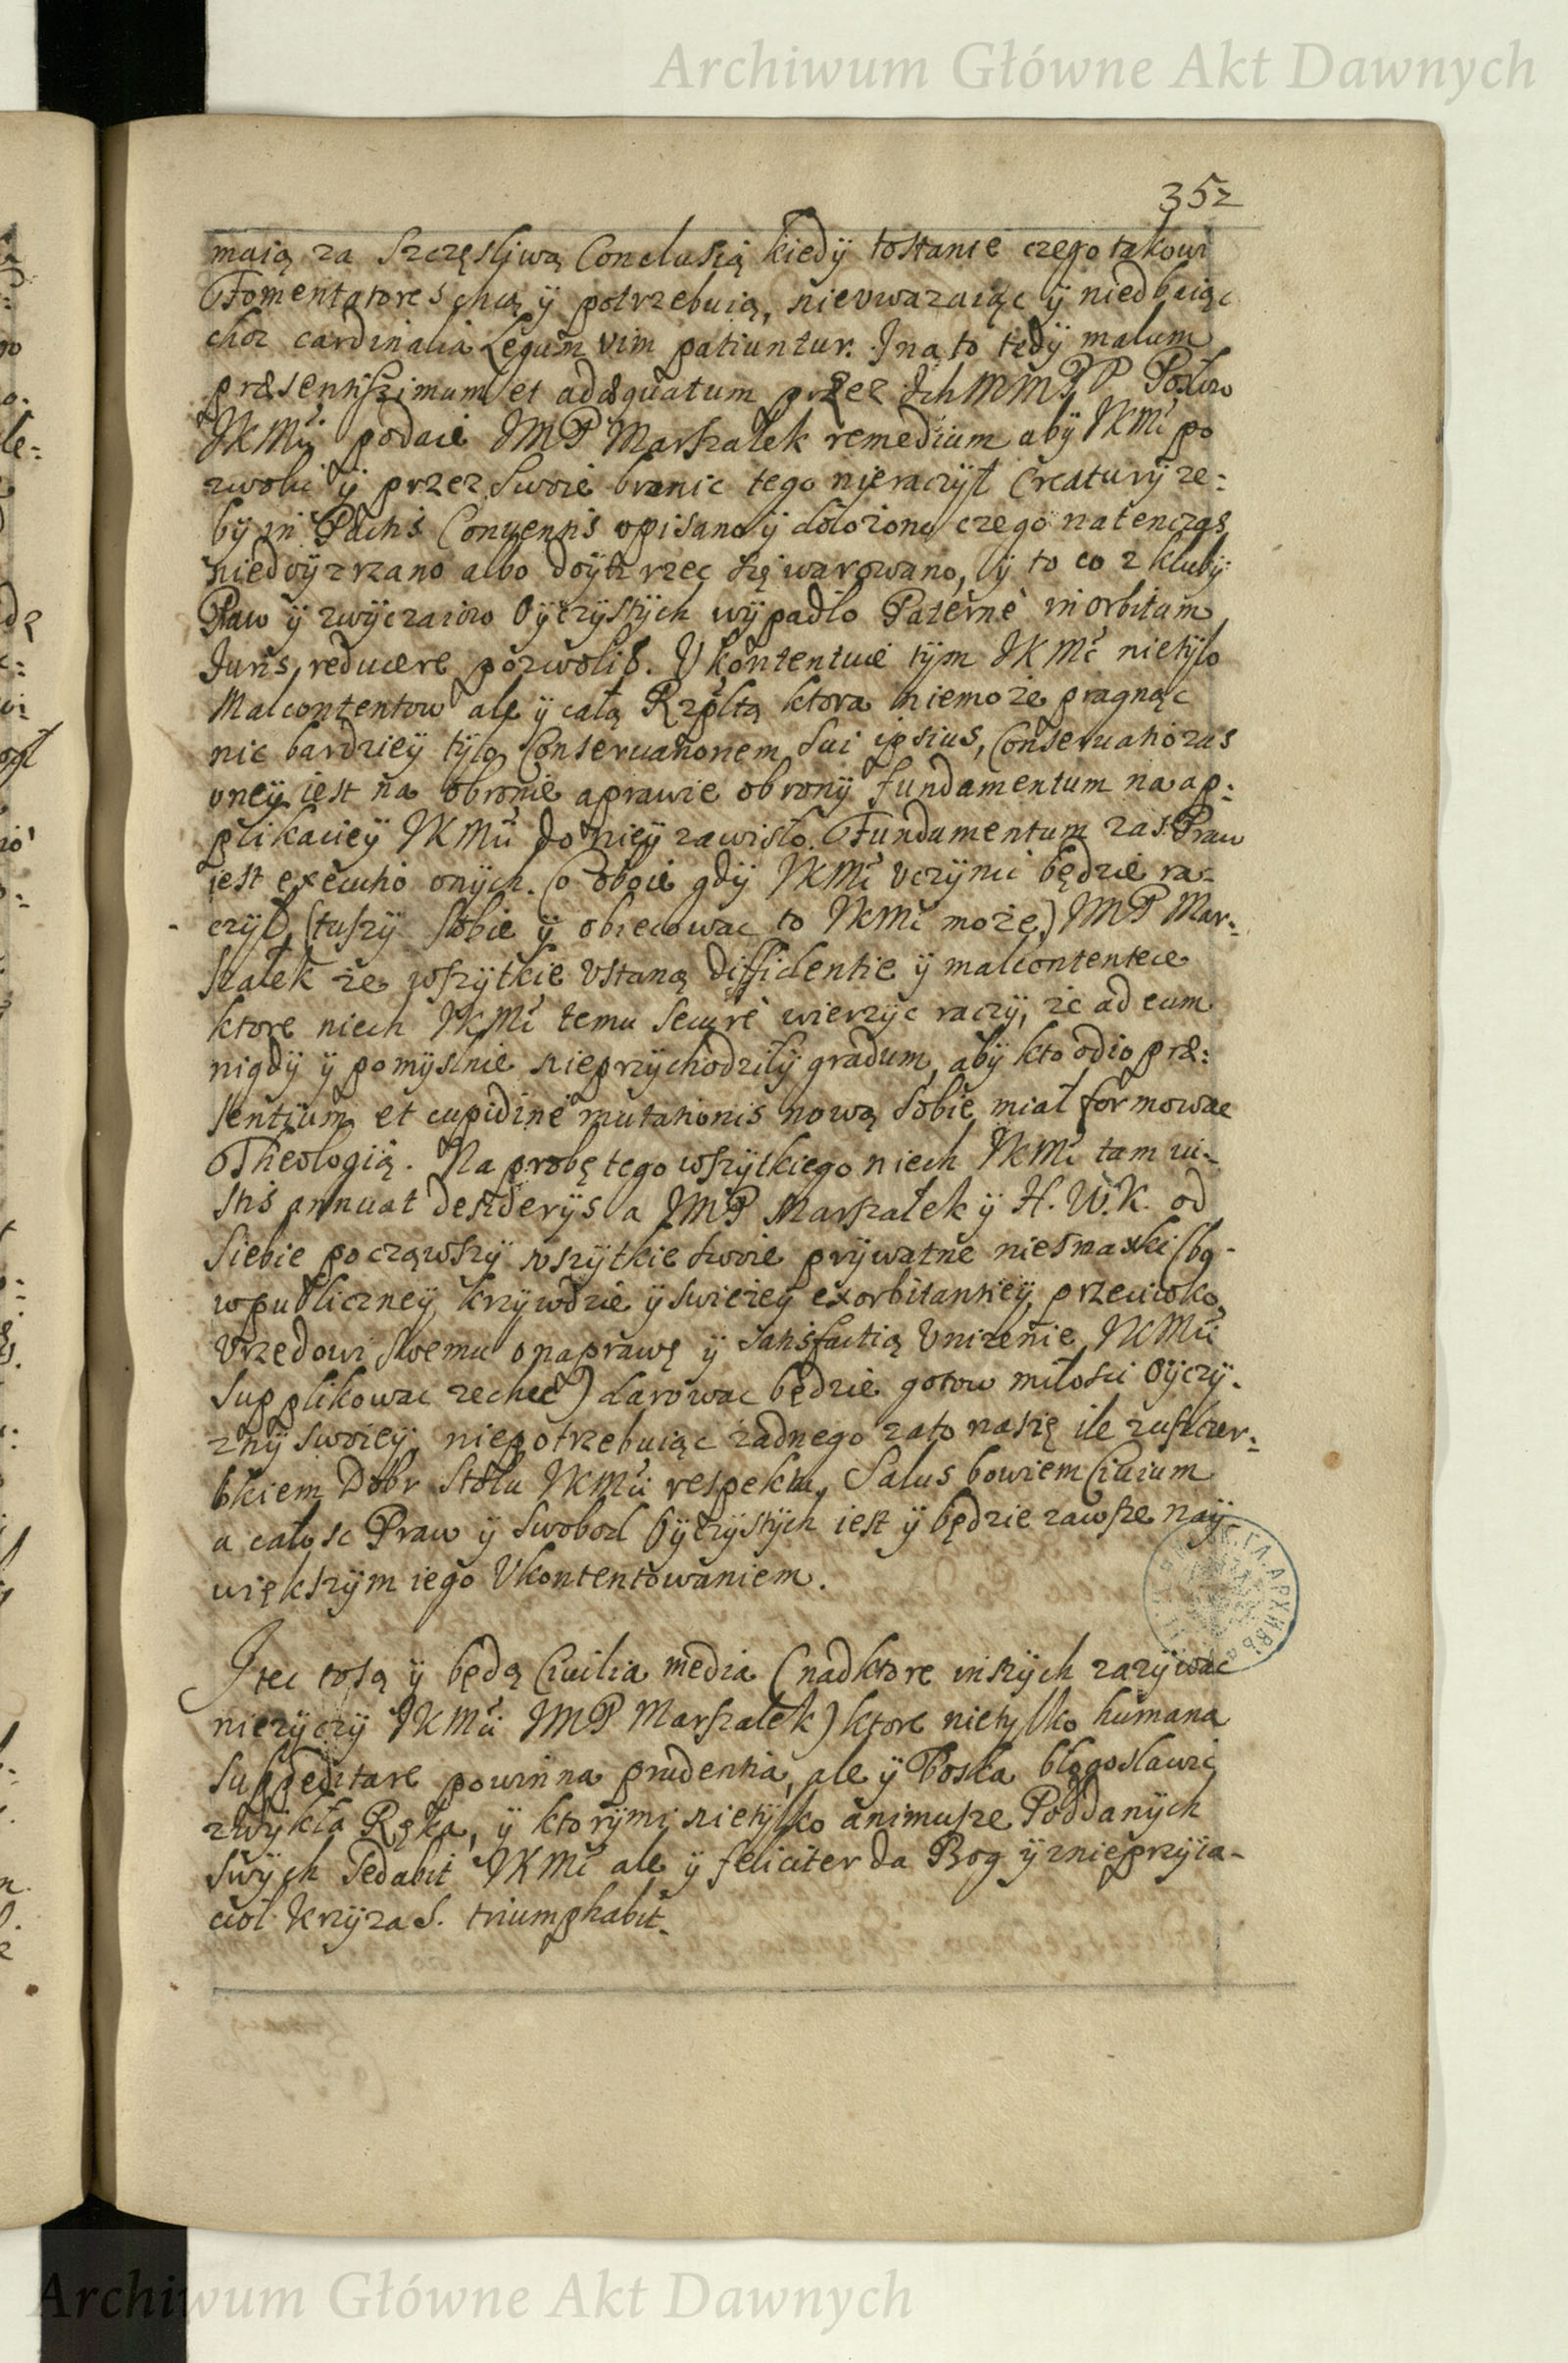 Archiwum Główne Akt Dawnych
352
maią za szczęsliwą Conclusią kiedÿ tostanie czego takowi
Fomentatores chcą ÿ potrzebuią, nieuwazaiąc ÿ niedbaiąc
choc cardinalia Legum vim patiuntur. I na to tedÿ malum
præsentissimum et adæquatum przez IchMMPP Posłow
JKMći podaie JMP Marszałek remedium abÿ JKMć po
zwolic ÿ przez swoie bronic tego nieraczÿł Creaturÿ ze=
bÿ in Pactis Conventis opisano ÿ dołożono czego natenczas
niedoÿzrzano albo doÿzrzec się warowano, ÿ to co z klubÿ
Praw ÿ zwÿczaiow Oÿczÿstÿch wÿpadło Paterne in orbitam
Iuris reducere pozwolił. Ukontentuie tÿm JKMć nietÿlo
Malcontentow ale ÿ całą Rzpltą ktora niemoże pragnąc
nic bardzieÿ tÿlo Conservationem sui ipsius, Conservatio zas
oneÿ iest na obronie a prawie obronÿ fundamentum na ap=
plikacieÿ JKMći do nieÿ zawisło. Fundamentum zas Praw
iest executio onÿch. Co oboie gdÿ JKMć uczÿnic będzie ra=
czÿł, (tuszÿ sobie ÿ obiecowac to JKMći może) JMP Mar=
szałek że wszÿtkie ustaną diffidentie ÿ malcontentece
ktore niech JKMć temu secure wierzÿc raczÿ, że ad eum
nigdÿ ÿ pomÿslnie nieprzÿchodziłÿ gradum, abÿ kto odio præ=
sentium et cupidine mutationis nową sobie miał formowac
Theologią. Na probę tego wszÿtkiego niech JKMć tam iu=
stis annuat desiderÿs a JMP Marszałek ÿ H. W. K. od
siebie począwszÿ wszÿtkie swoie prÿwatne niesmaki (bo
w publiczneÿ krzÿwdzie ÿ swieżeÿ exorbitantieÿ przeciwko
Urzędowi swemu o naprawę ÿ satisfactią Unizenie JKMći
supplikowac zechce) darowac będzie gotow miłości Oÿczÿ=
znÿ swoieÿ niepotrzebuiąc żadnego zato nasię ile zuszczer=
bkiem Dobr Stołu JKMći respektu, Salus bowiem Civium
a całosc Praw ÿ swobod Oÿczÿstÿch iest ÿ będzie zawsze naÿ
większÿm iego Ukontentowaniem.
Itec tosą ÿ będą Civilia media (nadktore inszÿch zazÿwac
nieżÿczÿ JKMći JMP Marszałek) ktore nietÿlko humana
suppeditare powinna prudentia, ale ÿ Boska błogosławic
zwÿkła Ręka, ÿ ktorÿmi nietÿlko animusze Poddanÿch
swÿch sedabit JKMć ale ÿ feliciter da Bog ÿ znieprzÿia=
cioł Krzÿza S. triumphabit.
Archiwum Główne Akt Dawnych